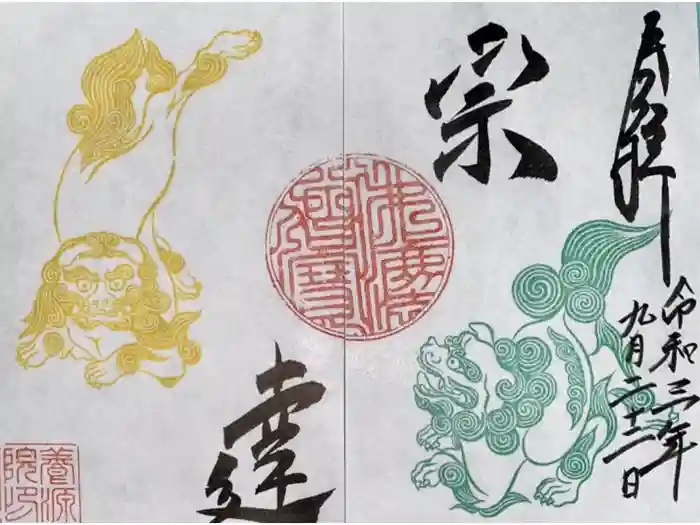 宗
達
令和三年
九月二十二日
佛法
僧寶
養源
院印